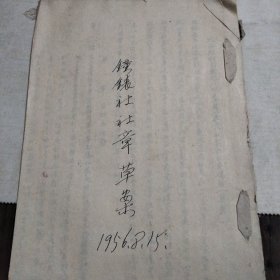 鐘錶社社章草案
1956.8.15.